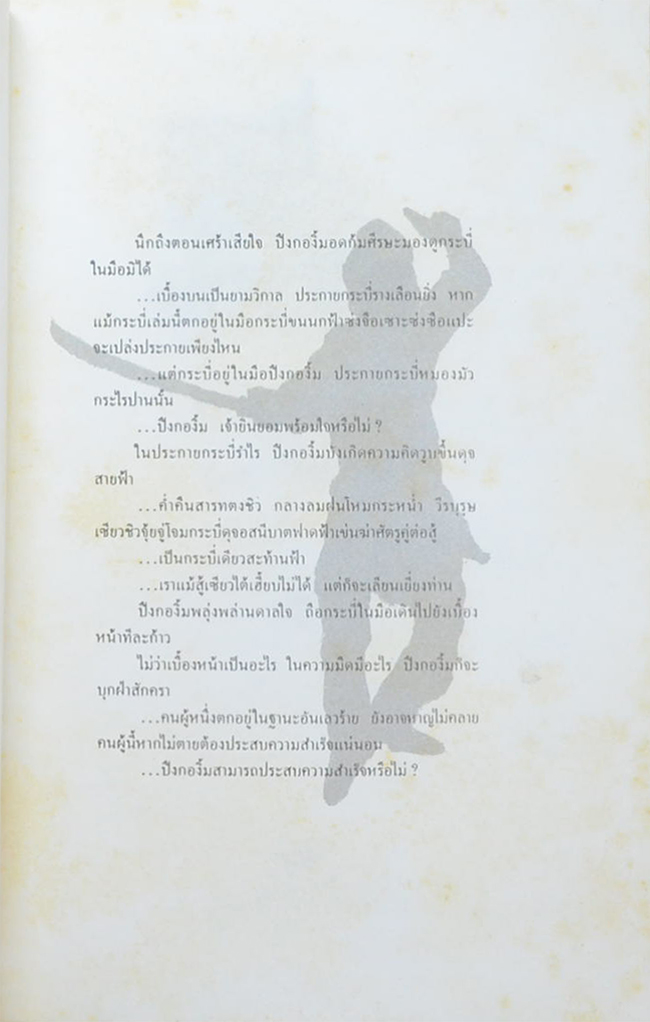 นึกถึงตอนเศร้าเสียใจ ปึงกอจิ้มอดก้มศีรษะมองดูกระบี่
ในมือมิได้
...เบื้องบนเป็นยามวิกาล ประกายกระบี่รางเลือนยิ่ง หาก
แม้กระบี่เล่มนี้ตกอยู่ในมือกระบี่ขนนกฟ้าซ่งจือเซาะซ่งซือแปะ
จะเปล่งประกายเพียงไหน
...แต่กระบี่อยู่ในมือปึงกอจิ้ม ประกายกระบี่หมองมัว
กระไรปานนั้น
...ปึงกอจิ้ม เจ้ายินยอมพร้อมใจหรือไม่ ?
ในประกายกระบี่รำไร ปึงกอจิ้มบังเกิดความคิดวูบขึ้นดุจ
สายฟ้า
...ค่ำคืนสารทตงชิว กลางลมฝนโหมกระหน่ำ วีรบุรุษ
เซียวชิวจุ้ยจู่โจมกระบี่ดุจอสนีบาตฟาดฟ้าเข่นฆ่าศัตรูคู่ต่อสู้
...เป็นกระบี่เดียวสะท้านฟ้า
...เราแม้สู้เซียวไต้เฮี้ยบไม่ได้ แต่ก็จะเลียนเยี่ยงท่าน
ปึงกอจิ้มพลุ่งพล่านดาลใจ ถือกระบี่ในมือเดินไปยังเบื้อง
หน้าทีละก้าว
ไม่ว่าเบื้องหน้าเป็นอะไร ในความมืดมีอะไร ปึงกอจิ้มก็จะ
บุกฝ่าสักครา
...คนผู้หนึ่งตกอยู่ในฐานะอันเลวร้าย ยังอาจหาญไม่คลาย
คนผู้นี้หากไม่ตายต้องประสบความสำเร็จแน่นอน
...ปึงกอจิ้มสามารถประสบความสำเร็จหรือไม่ ?